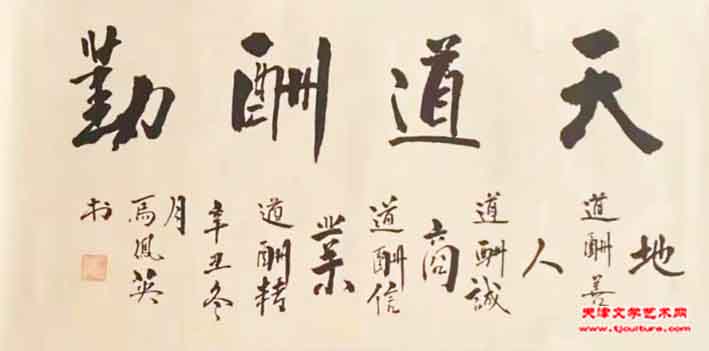 天道酬勤
地
道酬善
人
道酬誠
商
道酬信
業
道酬精
辛丑冬
月
馬鳳英
书
天津文学艺术网
www.tjculture.com